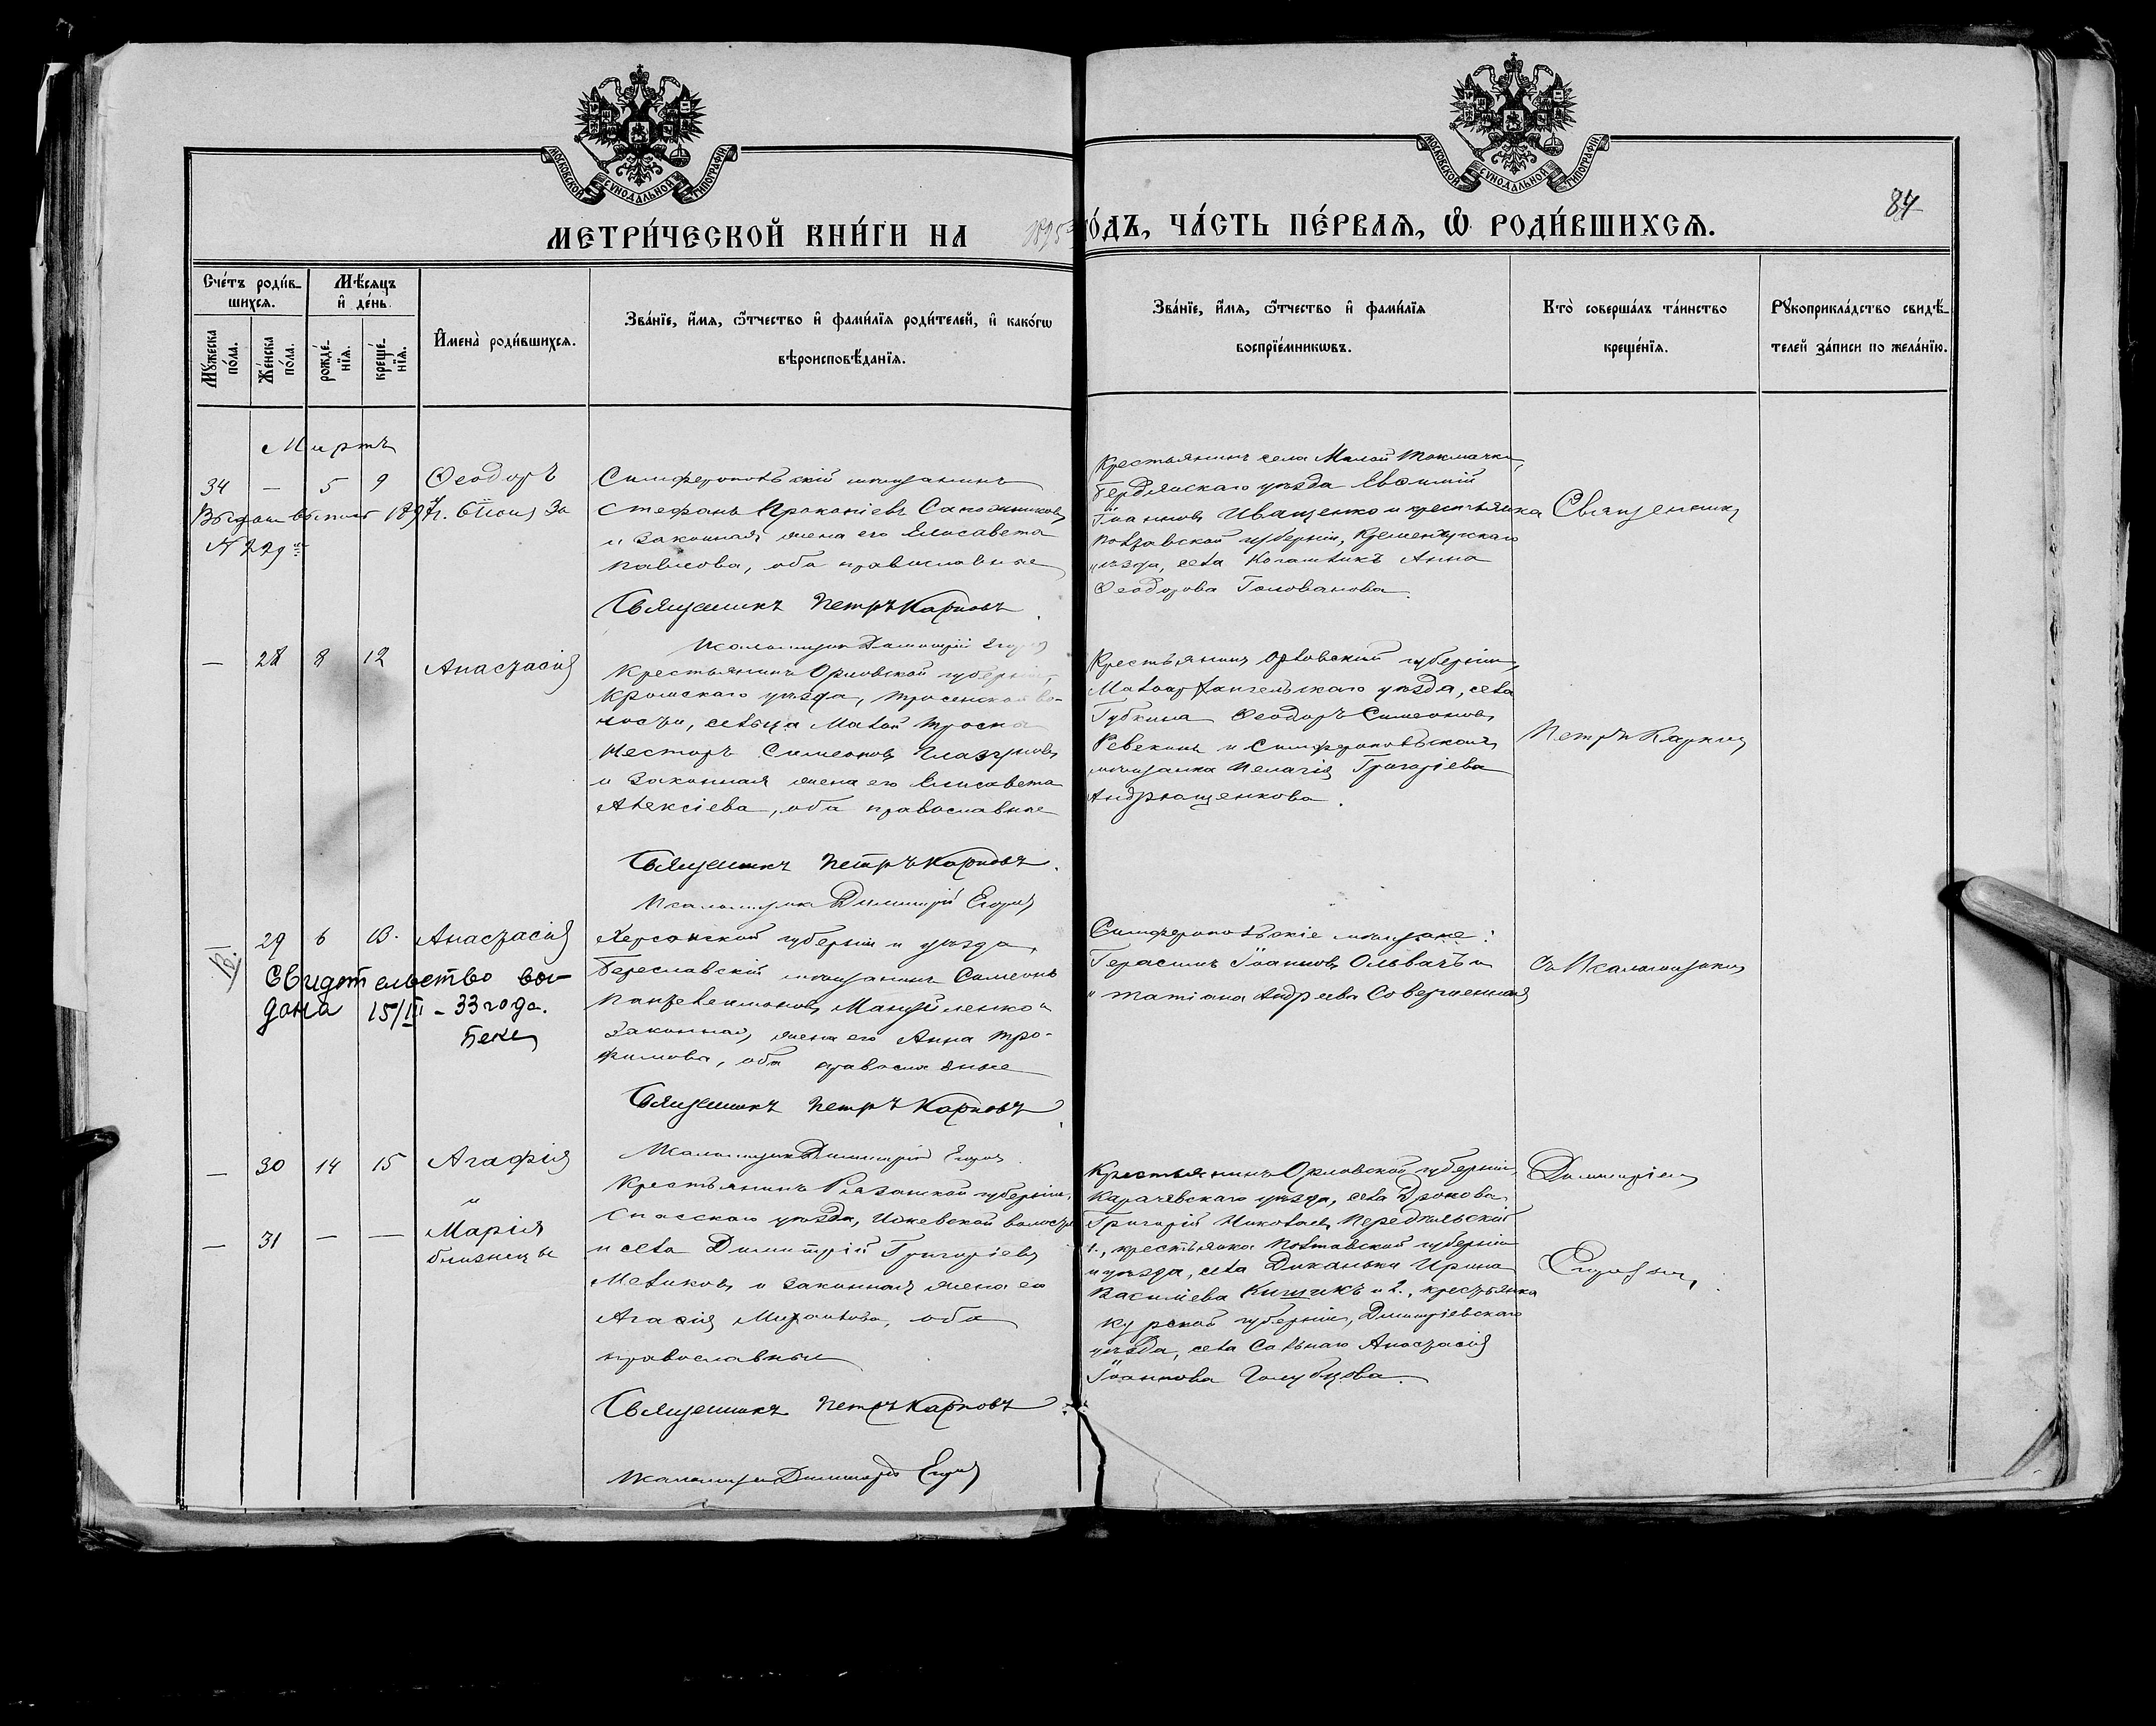 МОСКОВСКОЙ СѴНОДАЛЬНОЙ ТИПОГРАФІИ
МОСКОВСКОЙ СѴНОДАЛЬНОЙ ТИПОГРАФІИ
МЕТРИ́ЧЕСКОЙ КНИ́ГИ НА 1895 ГО́ДЪ, ЧА́СТЬ ПЕ́РВАѦ, Ѽ РОДИ́ВШИХСѦ.
84
Сче́тъ роди́в-
шихсѧ.
Мѣ́сѧцъ
и҆ де́нь
Мꙋ́жеска
по́ла.
Же́нска
по́ла.
рожде́-
нїѧ.
креще́-
нїѧ.
И҆мена̀ роди́вшихсѧ.
Зва́нїе, и҆́мѧ, ѻ҆́тчество и҆ фами́лїѧ роди́телей, и҆ како́гѡ
вѣроисповѣ́данїѧ.
Зва́нїе, и҆́мѧ, ѻ҆́тчество и҆ фами́лїѧ
воспрїе́мникѡвъ.
Кто̀ соверша́лъ та́инство
креще́нїѧ.
Рꙋкоприкла́дство свидѣ́-
телей за́писи по жела́нїю.
Мартъ
34 — 5 9 Ѳеодоръ
За
№ 229
Симферопольскій мѣщанинъ
Стефанъ Прокопіевъ Сапожниковъ
и законная жена его Елисавета
Павлова, оба православные
Священникъ Петръ Карповъ
Псаломщикъ Димитрій Егоров
Крестьянинъ села Малой Токмачки,
Бердянскаго уѣзда Евѳимій
Іоанновъ Иващенко и крестьянка
Полтавской губерніи, Кременчугскаго
уѣзда, села Анна
Ѳеодорова Голованова.
Священникъ
— 28 8 12 Анастасія
Крестьянинъ Орловской губерніи,
Кромскаго уѣзда, Тросенской во-
лости, сельца Малой Тросны
Несторъ Симеоновъ Глазуновъ
и законная жена его Елисавета
Алексіева, оба православные
Священникъ Петръ Карповъ.
Псаломщикъ Димитрій Егоров
Крестьянинъ Орловской губерніи,
Малоархангельскаго уѣзда, села
Губкина Ѳеодоръ Симеоновъ
Ревекинъ и Симферопольская
мѣщанка Пелагія Григоріева
Андрющенкова.
Петръ Карповъ
— 29 6 13. Анастасія
В.
Свидѣтельство вы-
дана 15/III - 33 года.
Херсонской губерніи и уѣзда,
Береславскій мѣщанинъ Симеонъ
Пантелеимоновъ Мануйленко и
законная жена его Анна Тро-
фимова, оба православные
Священникъ Петръ Карповъ
Псаломщикъ Димитрій Егоров
Симферопольскіе мѣщане:
Герасимъ Іоанновъ Ольвачъ и
Татіана Андреева Совершенная
съ Псаломщикомъ
— 30 14 15 Агафія
и
— 31 — — Марія
близнецы
Крестьянинъ Рязанской губерніи,
Спасскаго уѣзда, Ижевской волости
и села Димитрій Григоріевъ
Меликовъ и законная жена его
Агафія Михайлова, оба
православные
Священникъ Петръ Карповъ
Псаломщикъ Димитрій Егоров
Крестьянинъ Орловской губерніи,
Карачевскаго уѣзда, села Дронова
Григорій Николаевъ Передѣльскій
1., крестьянка Полтавской губерніи
и уѣзда, села Диканьки Ирина
Василіева Кищикъ и 2., крестьянка
Курской губерніи, Димитріевскаго
уѣзда, села Сальнаго Анастасія
Іоаннова Голубцова.
Димитріемъ
Егоровымъ.